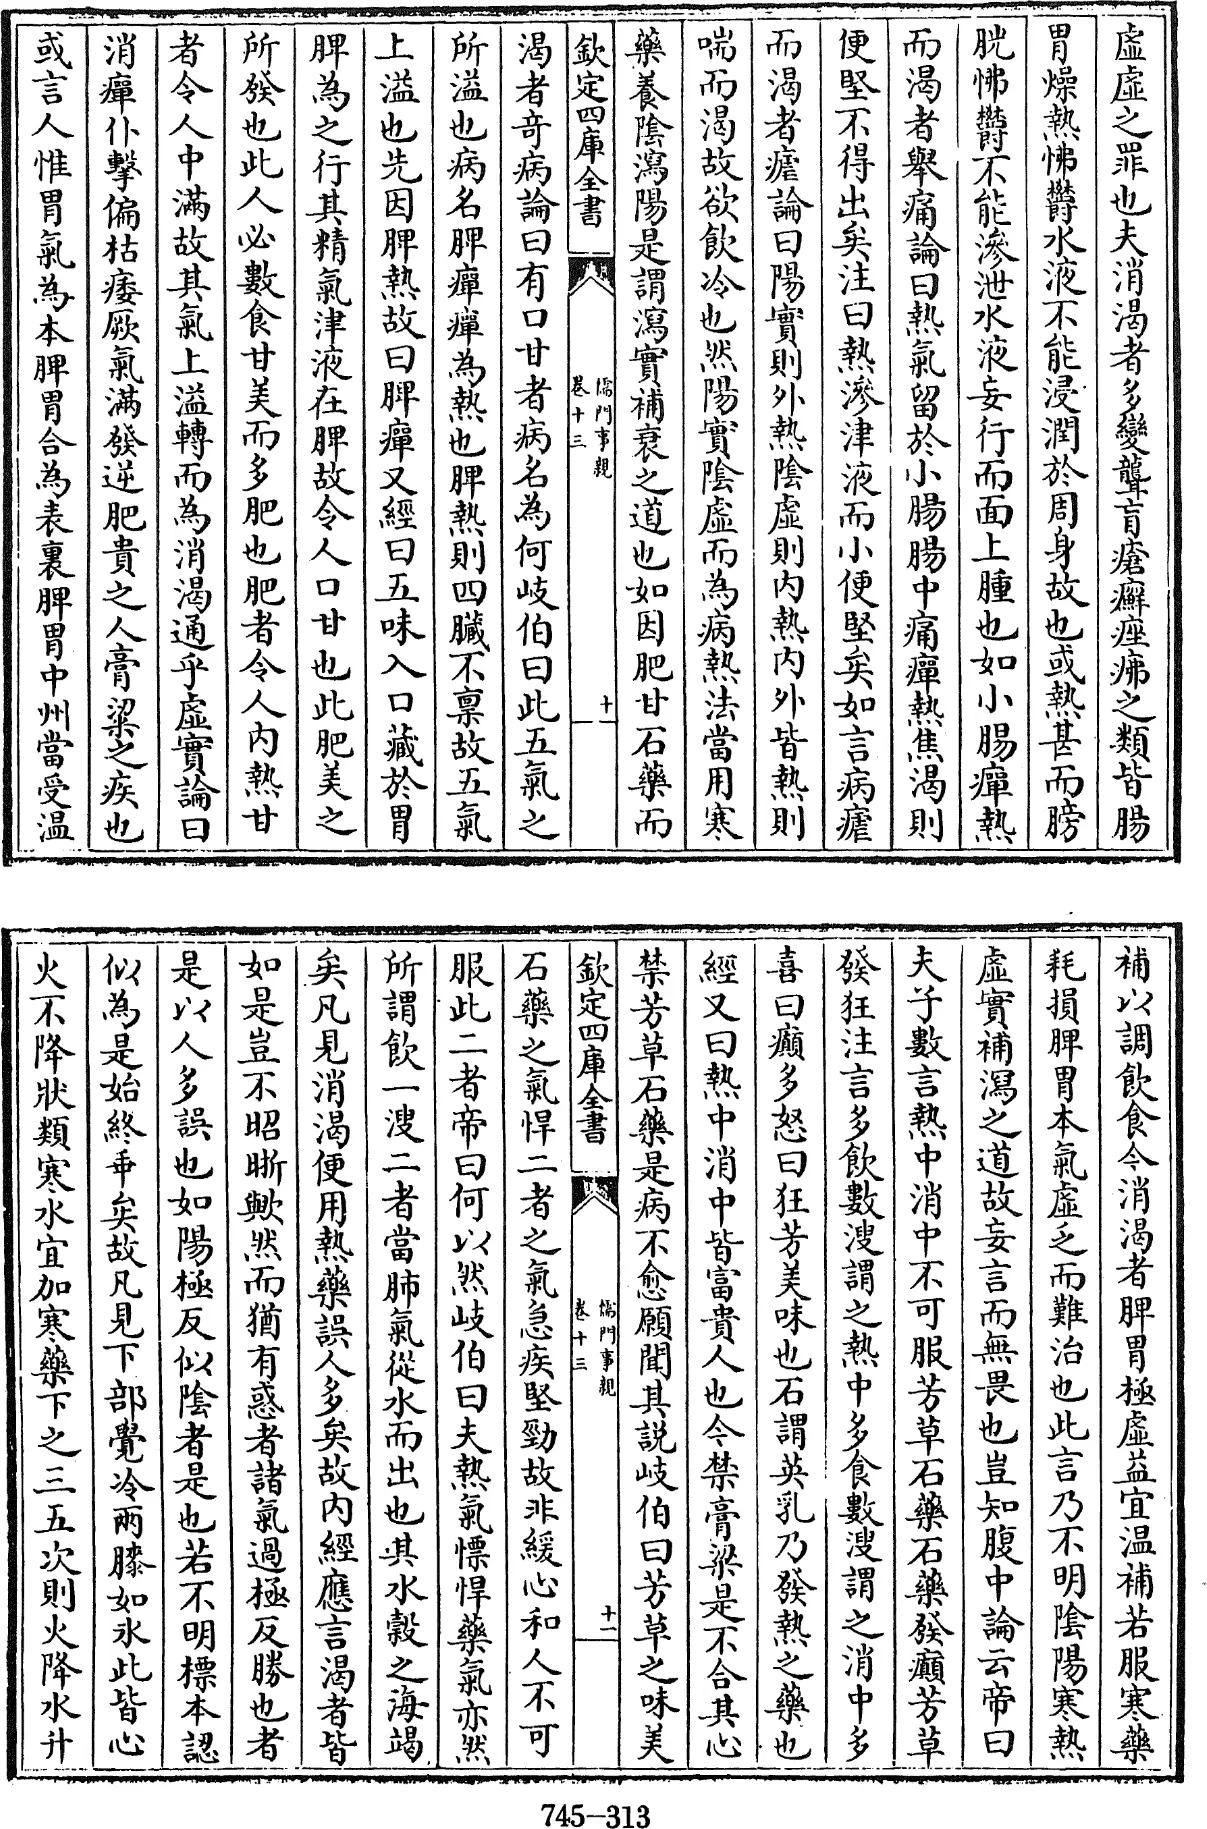 虛虛之罪也夫消渴者多變聾盲瘡癬痤疿之類皆腸
胃燥熱怫鬱水液不能浸潤於周身故也或熱甚而膀
胱怫鬱不能滲泄水液妄行而面上腫也如小腸癉熱
而渴者舉痛論曰熱氣留於小腸腸中痛癉熱焦渴則
便堅不得出矣注曰熱滲津液而小便堅矣如言病瘧
而渴者瘧論曰陽實則外熱陰虛則內熱內外皆熱則
喘而渴故欲飲冷也然陽實陰虛而為病熱法當用寒
藥養陰瀉陽是謂瀉實補衰之道也如因肥甘石藥而
欽定四庫全書
儒門事親
卷十三
十
渴者奇病論曰有口甘者病名為何岐伯曰此五氣之
所溢也病名脾癉癉為熱也脾熱則四臟不禀故五氣
上溢也先因脾熱故曰脾癉又經曰五味入口藏於胃
脾為之行其精氣津液在脾故令人口甘也此肥美之
所發也此人必數食甘美而多肥也肥者令人內熱甘
者令人中滿故其氣上溢轉而為消渴通乎虛實論曰
消癉仆擊偏枯痿厥氣滿發逆肥貴之人膏粱之疾也
或言人惟胃氣為本脾胃合為表裏脾胃中州當受温
補以調飲食今消渴者脾胃極虛益宜温補若服寒藥
耗損脾胃本氣虛乏而難治也此言乃不明陰陽寒熱
虛實補瀉之道故妄言而無畏也豈知腹中論云帝曰
夫子數言熱中消中不可服芳草石藥石藥發癲芳草
發狂注言多飲數溲謂之熱中多食數溲謂之消中多
喜曰癲多怒曰狂芳美味也石謂英乳乃發熱之藥也
經又曰熱中消中皆富貴人也今禁膏粱是不合其心
禁芳草石藥是病不愈願聞其説岐伯曰芳草之味美
欽定四庫全書
儒門事親
卷十三
十一
石藥之氣悍二者之氣急疾堅勁故非緩心和人不可
服此二者帝曰何以然岐伯曰夫熱氣慓悍藥氣亦然
所謂飲一溲二者當肺氣從水而出也其水穀之海竭
矣凡見消渴便用熱藥誤人多矣故內經應言渴者皆
如是豈不昭晰歟然而猶有惑者諸氣過極反勝也者
是以人多誤也如陽極反似陰者是也若不明標本認
似為是始終乖矣故凡見下部覺冷兩膝如氷此皆心
火不降狀類寒水宜加寒藥下之三五次則火降水升
745–313